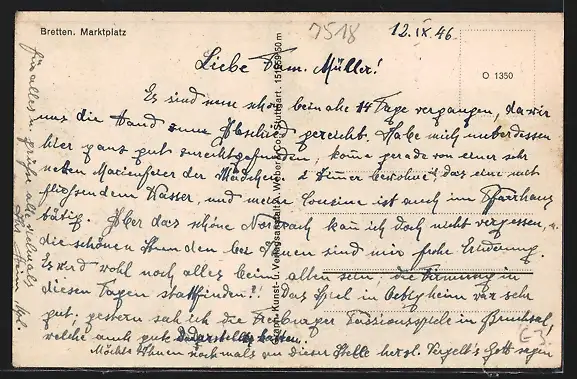 Bretten. Marktplatz
7518
12. IX. 46.
O 1350
Liebe Fam. Müller!
Es sind nun schon beinahe 14 Tage vergangen, da wir
uns die Hand zum Abschied gereicht. Habe mich unterdessen
hier ganz gut zurechtgefunden, komme gerade von einer sehr
netten Marienfeier der Mädchen. 2 Zimmer bewohne, das eine mit
fließendem Wasser, und meine Cousine ist auch im Pfarrhaus
tätig. Aber das schöne Nordrach kann ich doch nicht vergessen,
die schönen Stunden bei Ihnen sind mir frohe Erinnerung.
Es wird wohl noch alles beim alten sein, die Firmung in
diesen Tagen stattfinden?! Das Spiel in Oetigheim war sehr
gut. gestern sah ich die Freiburger Passionsspiele in Bruchsal,
welche auch gut
Möchte Ihnen nochmals an dieser Stelle herzl. Vergelt's Gott sagen
für alles u. grüße alle nochmals
Ihr
Graph. Kunst- u. Verlagsanstalt A. Weber & Co., Stuttgart.